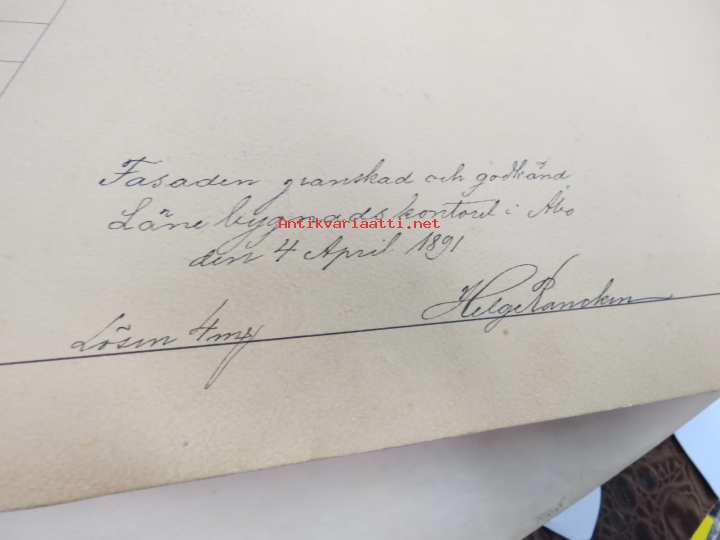 Fasaden granskad och godkänd
Läne bygnadskontoret i Åbo
Antikvariaatti.net
den 4 April 1891
Helge Rancken
Lösen 4 mk